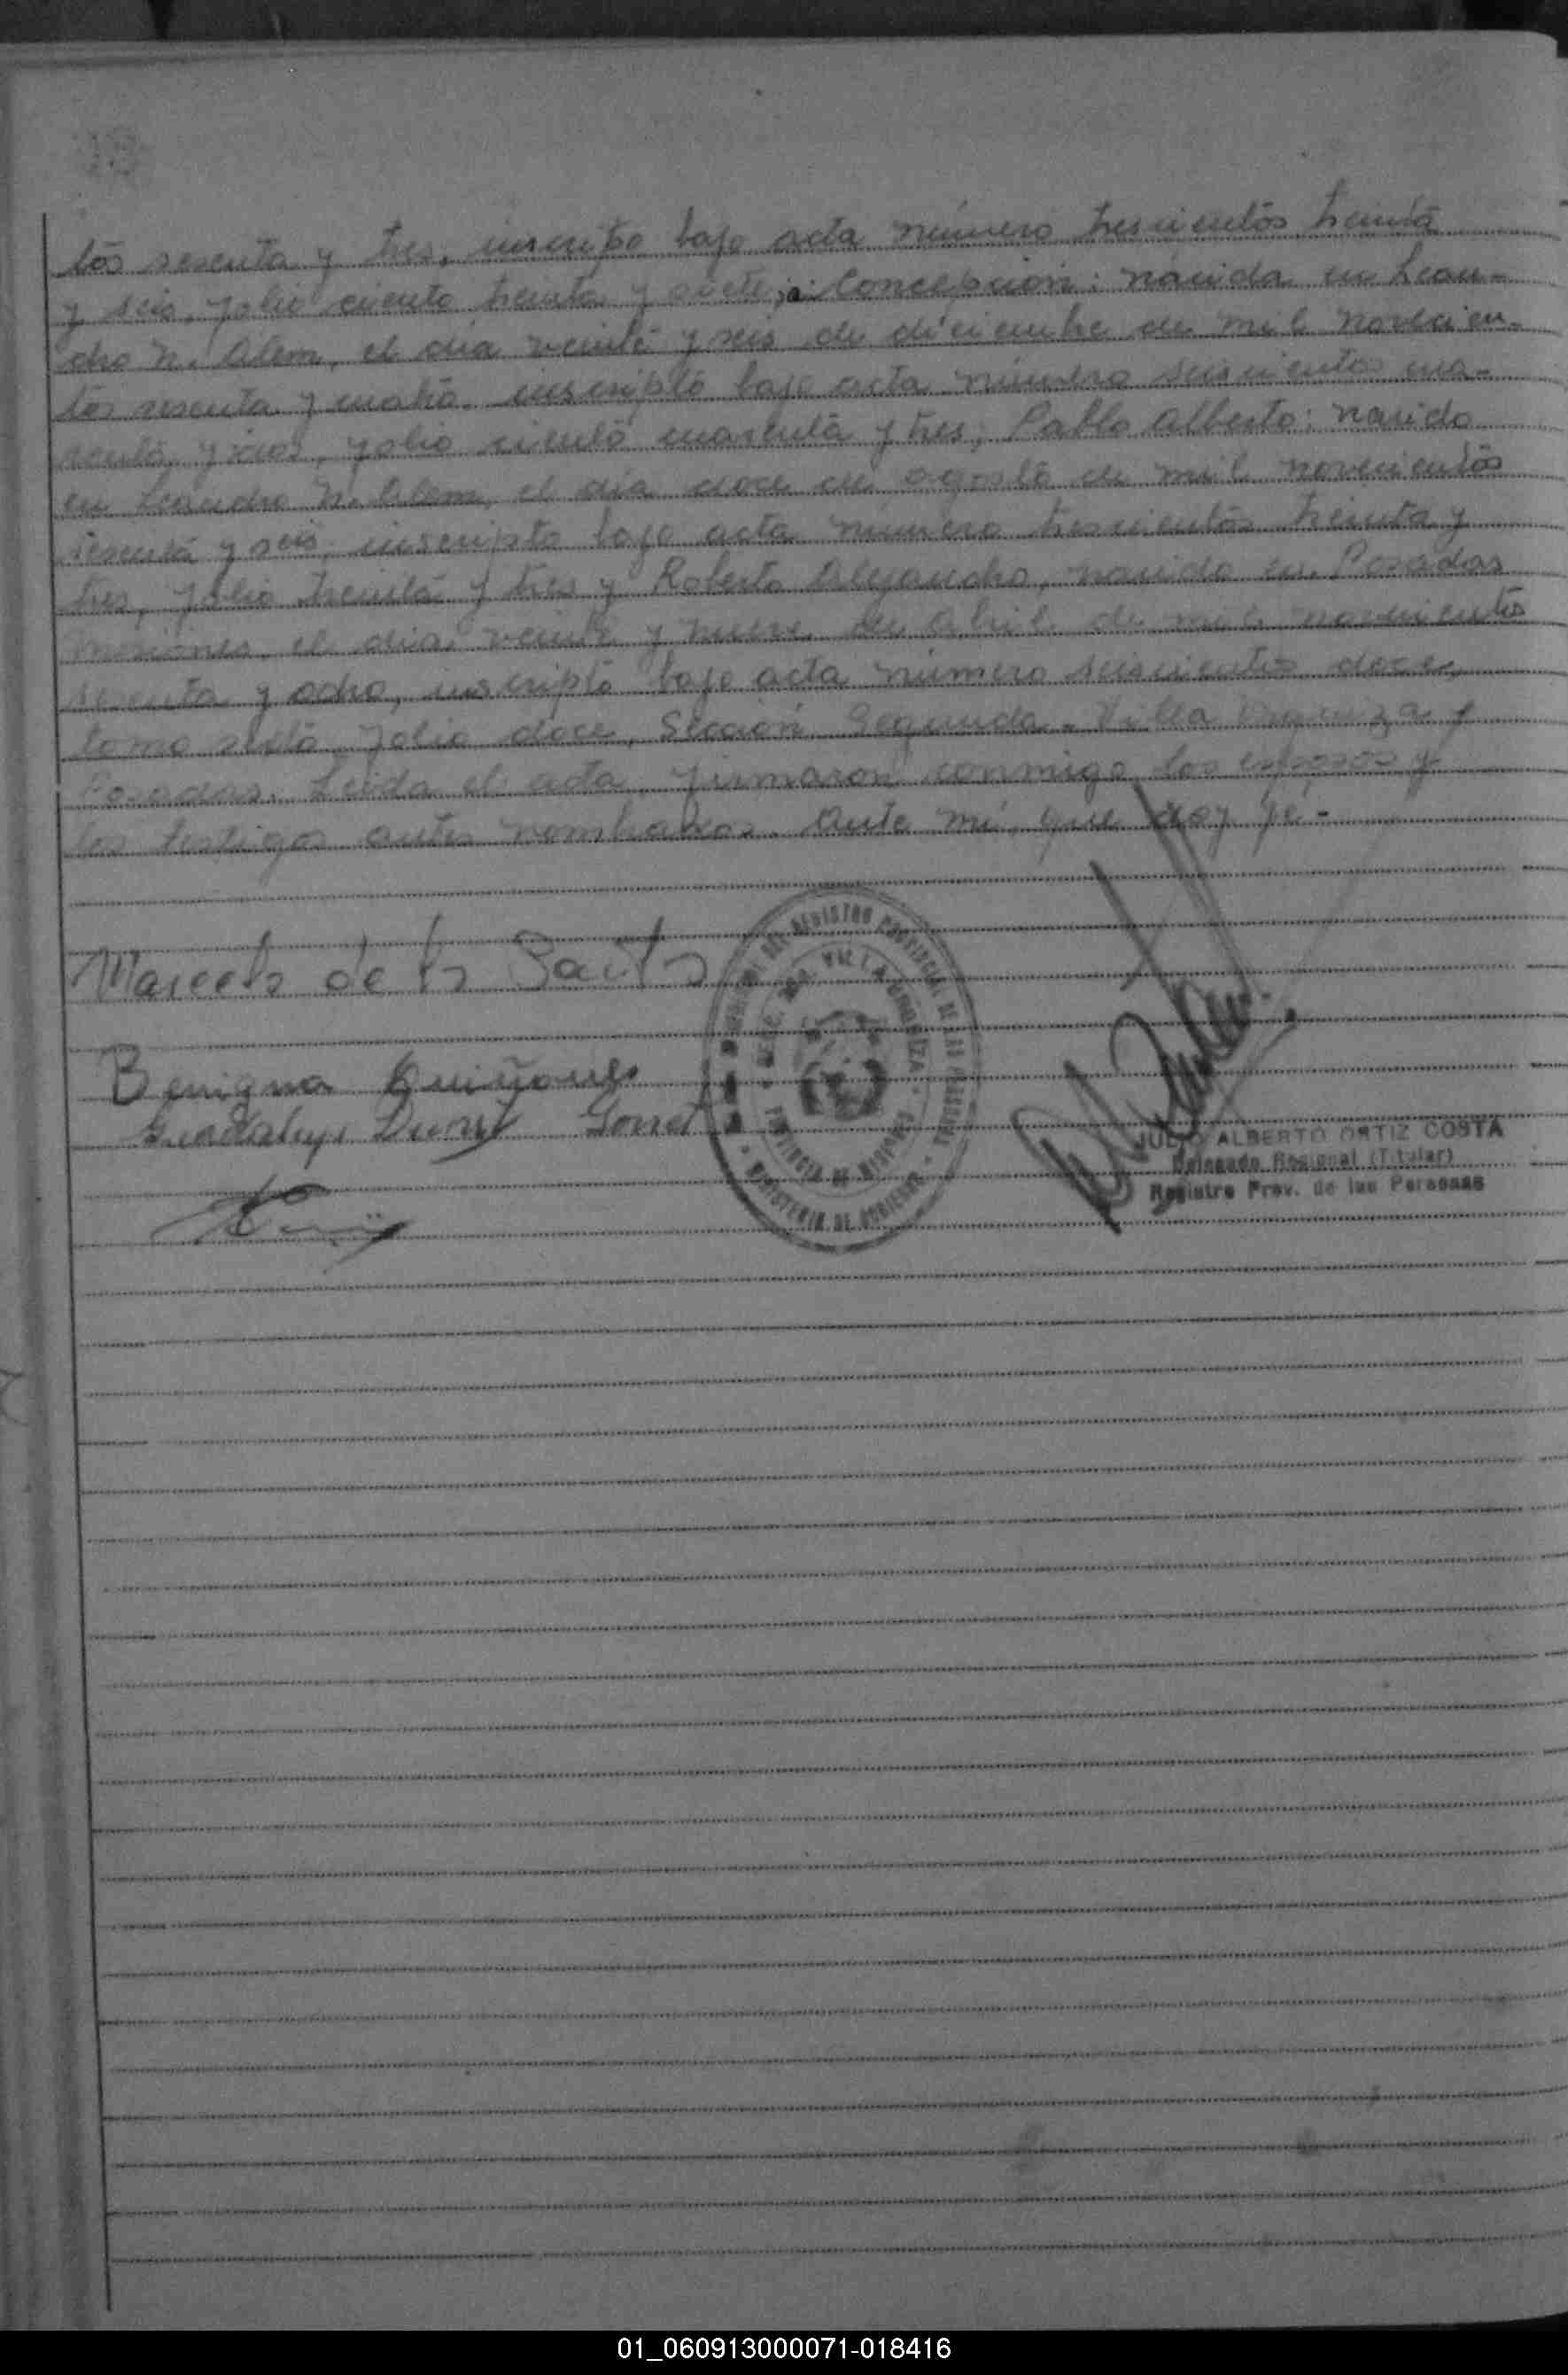 tos sesenta y tres, inscripto bajo acta número trescientos treinta
y seis, folio ciento treinta y siete; Concepción: nacida en Lean-
dro N. Alem, el día veinte y seis de diciembre de mil novecien-
tos sesenta y cuatro, inscripto bajo acta número seiscientos cua-
renta y dos, folio ciento cuarenta y tres; Pablo Alberto: nacido
en Leandro N. Alem, el día doce de agosto de mil novecientos
sesenta y seis, inscripto bajo acta número trescientos treinta y
tres, folio treinta y tres y Roberto Alejandro, nacido en Posadas
Misiones, el día veinte y nueve de abril de mil novecientos
sesenta y ocho, inscripto bajo acta número seiscientos doce,
tomo sexto, folio doce, Sección Segunda - Villa Urquiza -
Posadas. Leída el acta, firmaron conmigo los esposos y
los testigos antes nombrados. Ante mí, que doy fe -
Marcelo de la
Benigna Quiñones
REGISTRO PROVINCIAL DE LAS PERSONAS
VILLA URQUIZA
PROVINCIA DE MISIONES
MINISTERIO DE GOBIERNO
JULIO ALBERTO ORTIZ COSTA
Delegado Regional (Titular)
Registro Prov. de las Personas
01_060913000071-018416